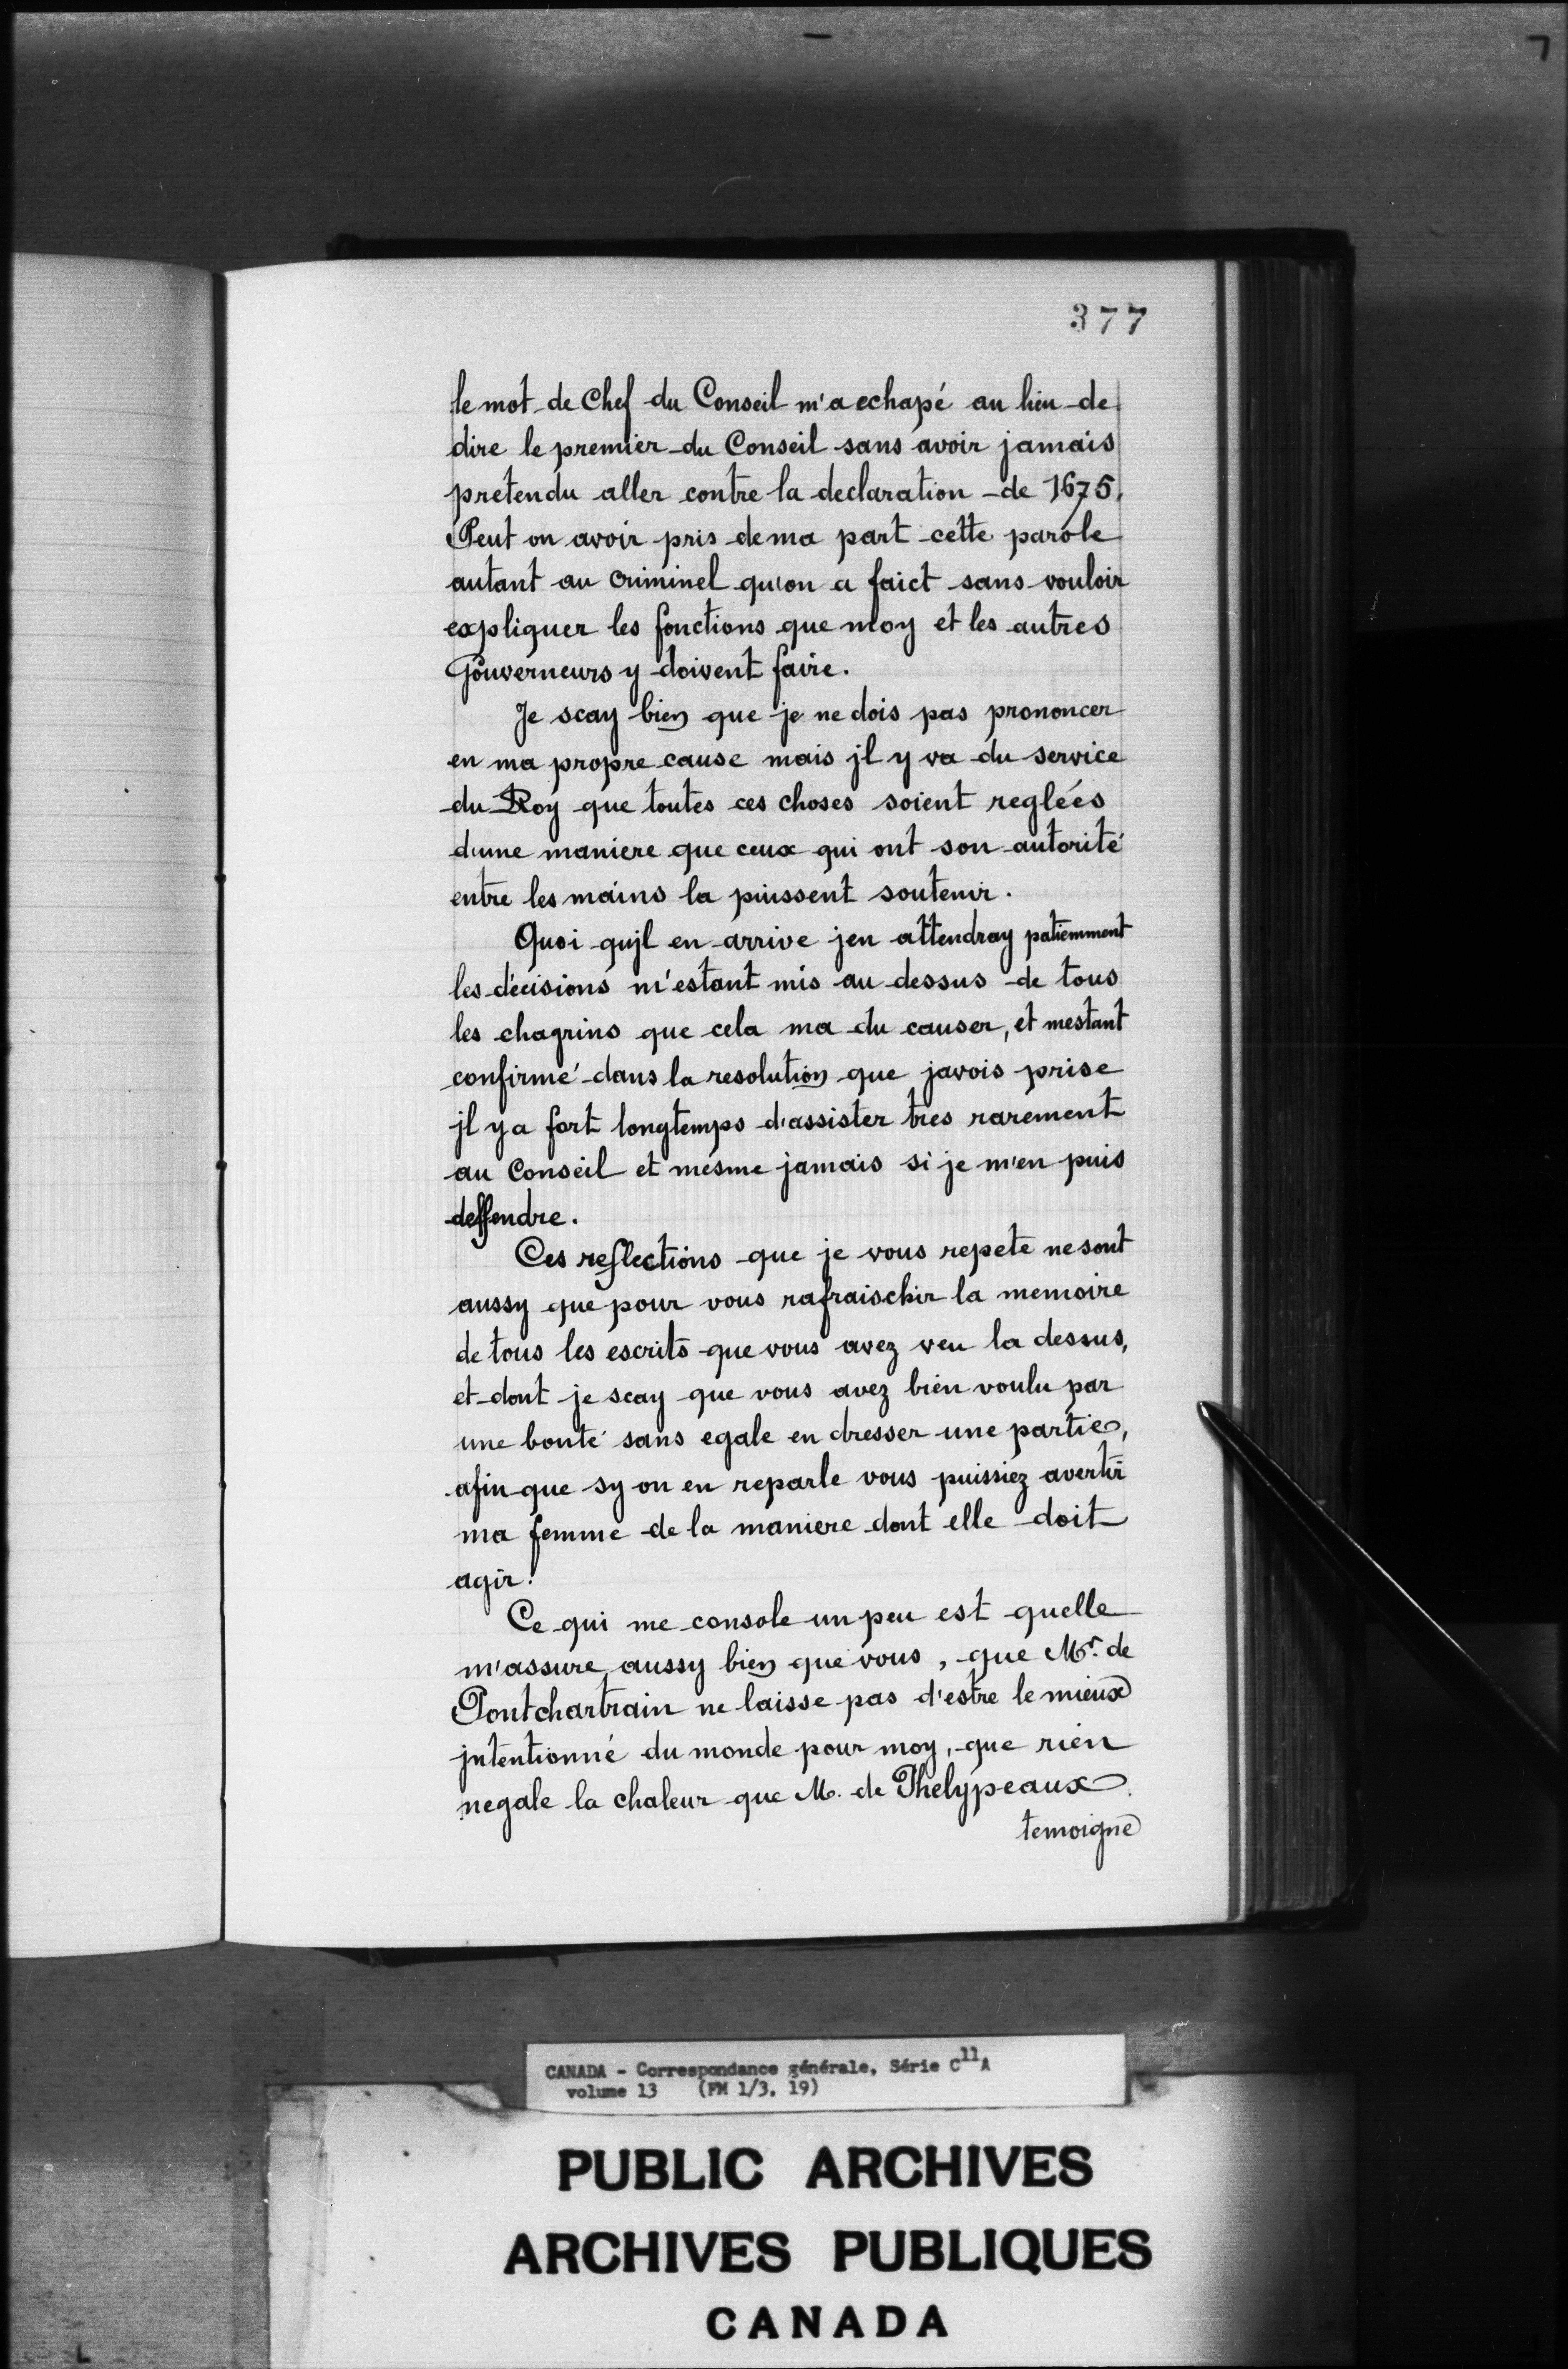 377
le mot de Chef du Conseil m'a echapé au lieu de
dire le premier du Conseil sans avoir jamais
pretendu aller contre la declaration de 1675.
Peut on avoir pris de ma part cette parole
autant au criminel qu'on a faict sans vouloir
expliquer les fonctions que moy et les autres
Gouverneurs y doivent faire.
Je scay bien que je ne dois pas prononcer
en ma propre cause mais jl y va du service
du Roy que toutes ces choses soient reglées
dune maniere que ceux qui ont son autorité
entre les mains la puissent soutenir.
Quoi qujl en arrive jen attendray patiemment
les décisions m'estant mis au dessus de tous
les chagrins que cela ma du causer, et mestant
confirmé dans la resolution que javois prise
jl y a fort longtemps d'assister tres rarement
au Conseil et mesme jamais si je m'en puis
deffendre.
Ces reflections que je vous repete ne sont
aussy que pour vous rafraischir la memoire
de tous les escrits que vous avez veu la dessus,
et dont je scay que vous avez bien voulu par
une bonté sans egale en dresser une partie,
afin que sy on en reparle vous puissiez avertir
ma femme de la maniere dont elle doit
agir.
Ce qui me console un peu est quelle
m'assure aussy bien que vous, que Mr. de
Pontchartrain ne laisse pas d'estre le mieux
jntentionné du monde pour moy, que rien
negale la chaleur que M. de Phelypeaux
temoigne
CANADA - Correspondance générale, Série C11A
volume 13 (FM 1/3, 19)
PUBLIC ARCHIVES
ARCHIVES PUBLIQUES
CANADA